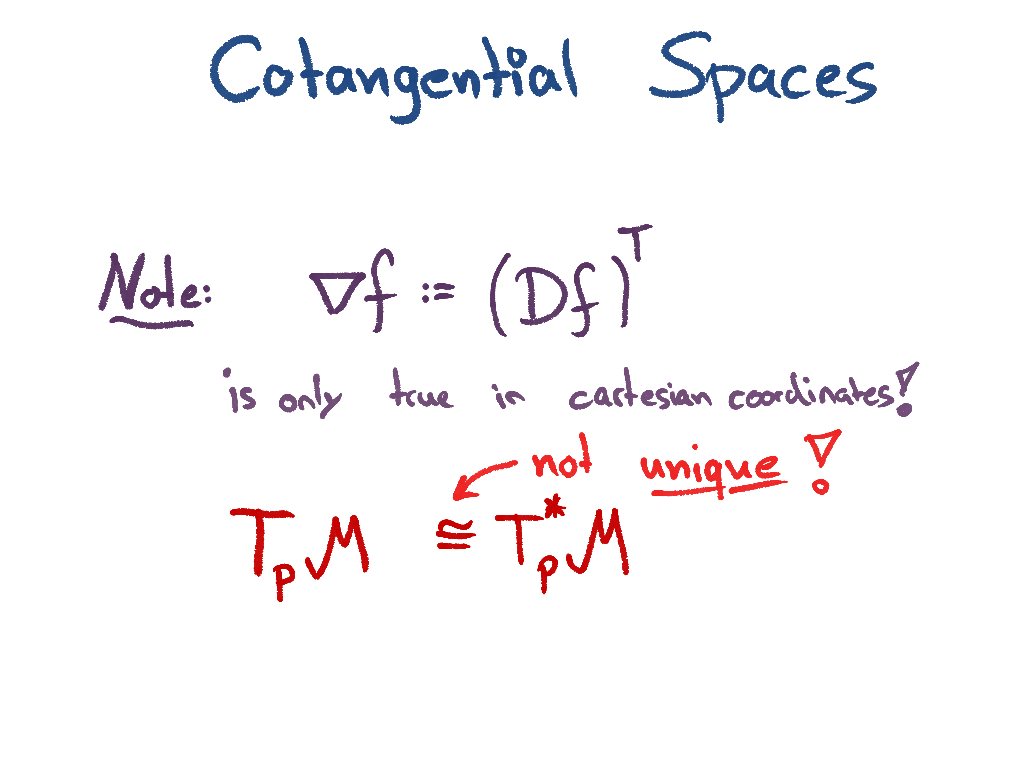 Cotangential Spaces
Note: ∇f := (Df)ᵀ
is only true in cartesian coordinates!
not unique!
TₚM ≅ Tₚ*M